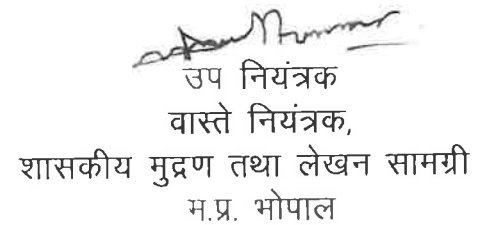 उप नियंत्रक
वास्ते नियंत्रक,
शासकीय मुद्रण तथा लेखन सामग्री
म.प्र. भोपाल